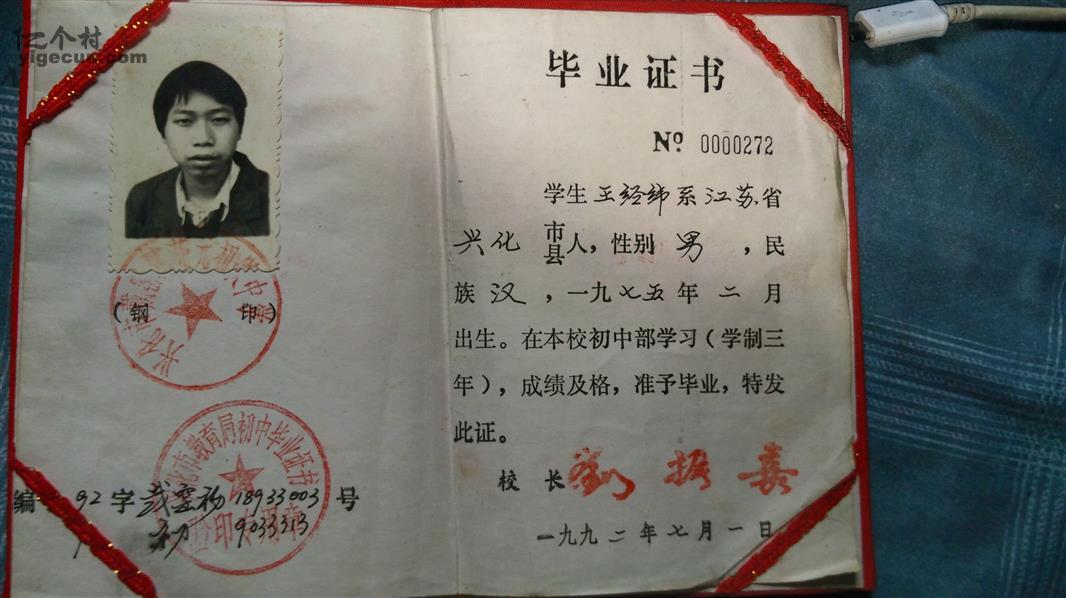 亿个村
yigecun.com
(钢 印)
兴化市教育局初中毕业证书
验印专用章
编 92 字 戴窑初 18933003 号
初 9033313
毕业证书
№ 0000272
学生王经纬系江苏省
兴化 市县人，性别 男 ，民
族 汉 ，一九七五年 二 月
出生。在本校初中部学习（学制三
年），成绩及格，准予毕业，特发
此证。
校 长 刘振嘉
一九九二年七月一日